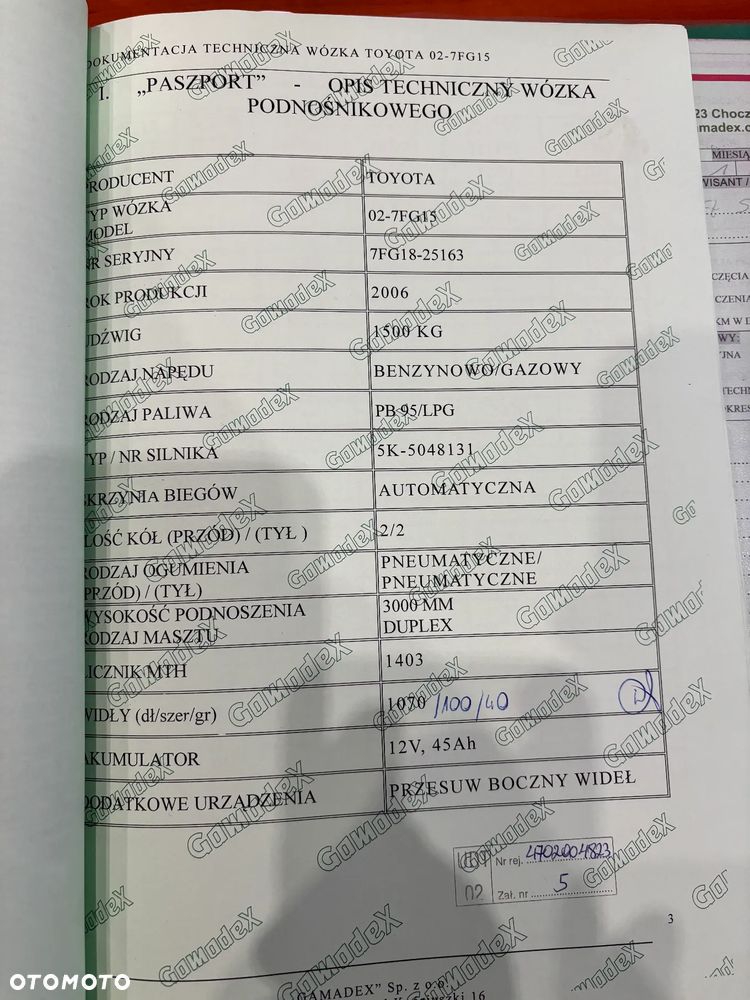 DOKUMENTACJA TECHNICZNA WÓZKA TOYOTA 02-7FG15
I. „PASZPORT” - OPIS TECHNICZNY WÓZKA
PODNOŚNIKOWEGO
PRODUCENT TOYOTA
TYP WÓZKA
MODEL 02-7FG15
NR SERYJNY 7FG18-25163
ROK PRODUKCJI 2006
UDŹWIG 1500 KG
RODZAJ NAPĘDU BENZYNOWO/GAZOWY
RODZAJ PALIWA PB 95/LPG
TYP / NR SILNIKA 5K-5048131
SKRZYNIA BIEGÓW AUTOMATYCZNA
ILOŚĆ KÓŁ (PRZÓD) / (TYŁ ) 2/2
RODZAJ OGUMIENIA PNEUMATYCZNE/
(PRZÓD) / (TYŁ) PNEUMATYCZNE
WYSOKOŚĆ PODNOSZENIA 3000 MM
RODZAJ MASZTU DUPLEX
LICZNIK MTH 1403
WIDŁY (dł/szer/gr) 1070 /100/40
AKUMULATOR 12V, 45Ah
DODATKOWE URZĄDZENIA PRZESUW BOCZNY WIDEŁ
UDT Nr rej. 4702004823
02 Zał. nr 5
3
GAMADEX” Sp. z o.o.
16
23 Chocz
madex.c
MIESIĄ
WISANT /
CZĘCIA
CZENIA
KM W D
WY:
YJNA
TECHN
OKRES
GamadeX
OTOMOTO